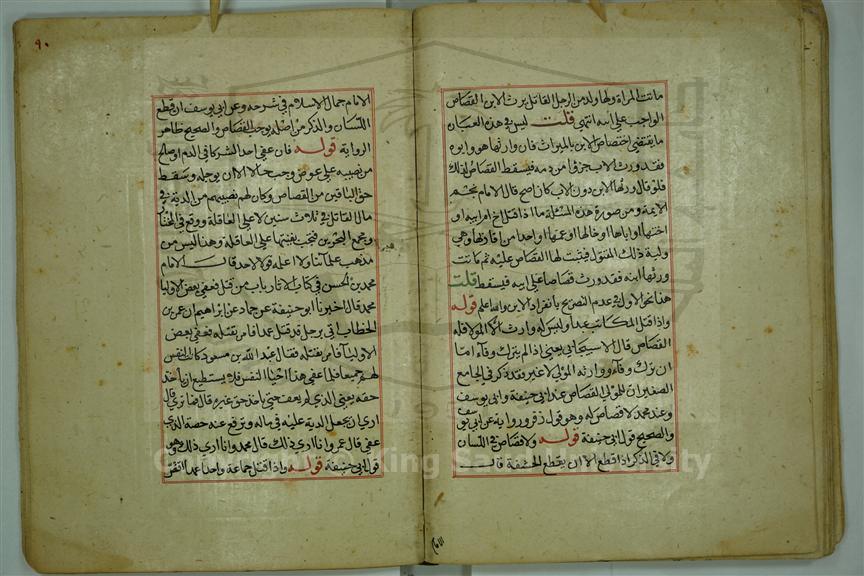 ماتت المراة ولها ولد من الرجل القاتل يرث الابن القصاص
الواجب على ابيه انتهى قلت ليس في هذه العبارة
ما يقتضي اختصاص الابن بالميراث فان وارثها هو وابوه
فقد ورث الاب جزؤا من دمه فيسقط القصاص لذلك
فلو قال ورثها الابن دون الاب كان اصح قال الامام نجم
الايمة ومن صورة هذه المسئلة ما اذا قتل اخ امرابيه او
اختها او اباها او خالها او عمها او واحدا من اقاربها وهي
ولية ذلك المقتول فيثبت لها القصاص عليه ثم ماتت
ورثها ابنه فقد ورث قصاصا على ابيه فيسقط قلت
هذا نحو الاول في عدم التصريح بانفراد الابن والله اعلم قوله
واذا قتل المكاتب عمدا وليس له وارث الا المولى فله
القصاص قال الاسبيجابي يعني اذا لم يترك وفاء اما
ان ترك وفاء ووارثه المولى لا غير فقد ذكر في الجامع
الصغير ان للمولى القصاص عند ابي حنيفة وابي يوسف
وعند محمد لا قصاص له وهو قول زفر ورواية عن ابي يوسف
والصحيح قول ابي حنيفة قوله ولا قصاص في اللسان
ولا في الذكر اذا قطع الا ان يقطع الحشفة قال
الامام
٩٠
الامام جمال الاسلام في شرحه وعن ابي يوسف ان قطع
اللسان والذكر من اصله يوجب القصاص والصحيح ظاهر
الرواية قوله فان عفى احد الشركا في الدم او صلح
من نصيبه على عوض وجب حالا الا ان يوجله وسقط
حق الباقين من القصاص وكان لهم نصيبهم من الدية في
مال القاتل في ثلاث سنين لا على العاقلة ووقع في المختار
ومجمع البحرين فتجب بقيتها على العاقلة وهذا ليس من
مذهب علمائنا ولا اعلمه قولا لاحد قال الامام
محمد بن الحسن في كتاب الاثار باب من قتل فعفى بعض الاوليا
محمد قال اخبرنا ابو حنيفة عن حماد عن ابراهيم ان عمر بن
الخطاب اتي برجل قد قتل عمدا فامر بقتله فعفى بعض
الاوليا فامر بقتله فقال عبد الله بن مسعود كانت النفس
لهم جميعا فلما عفى هذا احيا النفس فلا يستطيع ان ياخذ
حقه يعني الذي لم يعف حتى ياخذ حق غيره قال فما ترى قال
ارى ان يجعل الدية عليه في ماله وترفع عنه حصة الذي
عفى قال عمر وانا ارى ذلك قال محمد وانا ارى ذلك وهو
قول ابي حنيفة قوله واذا قتل جماعة واحدا عمدا اقتص